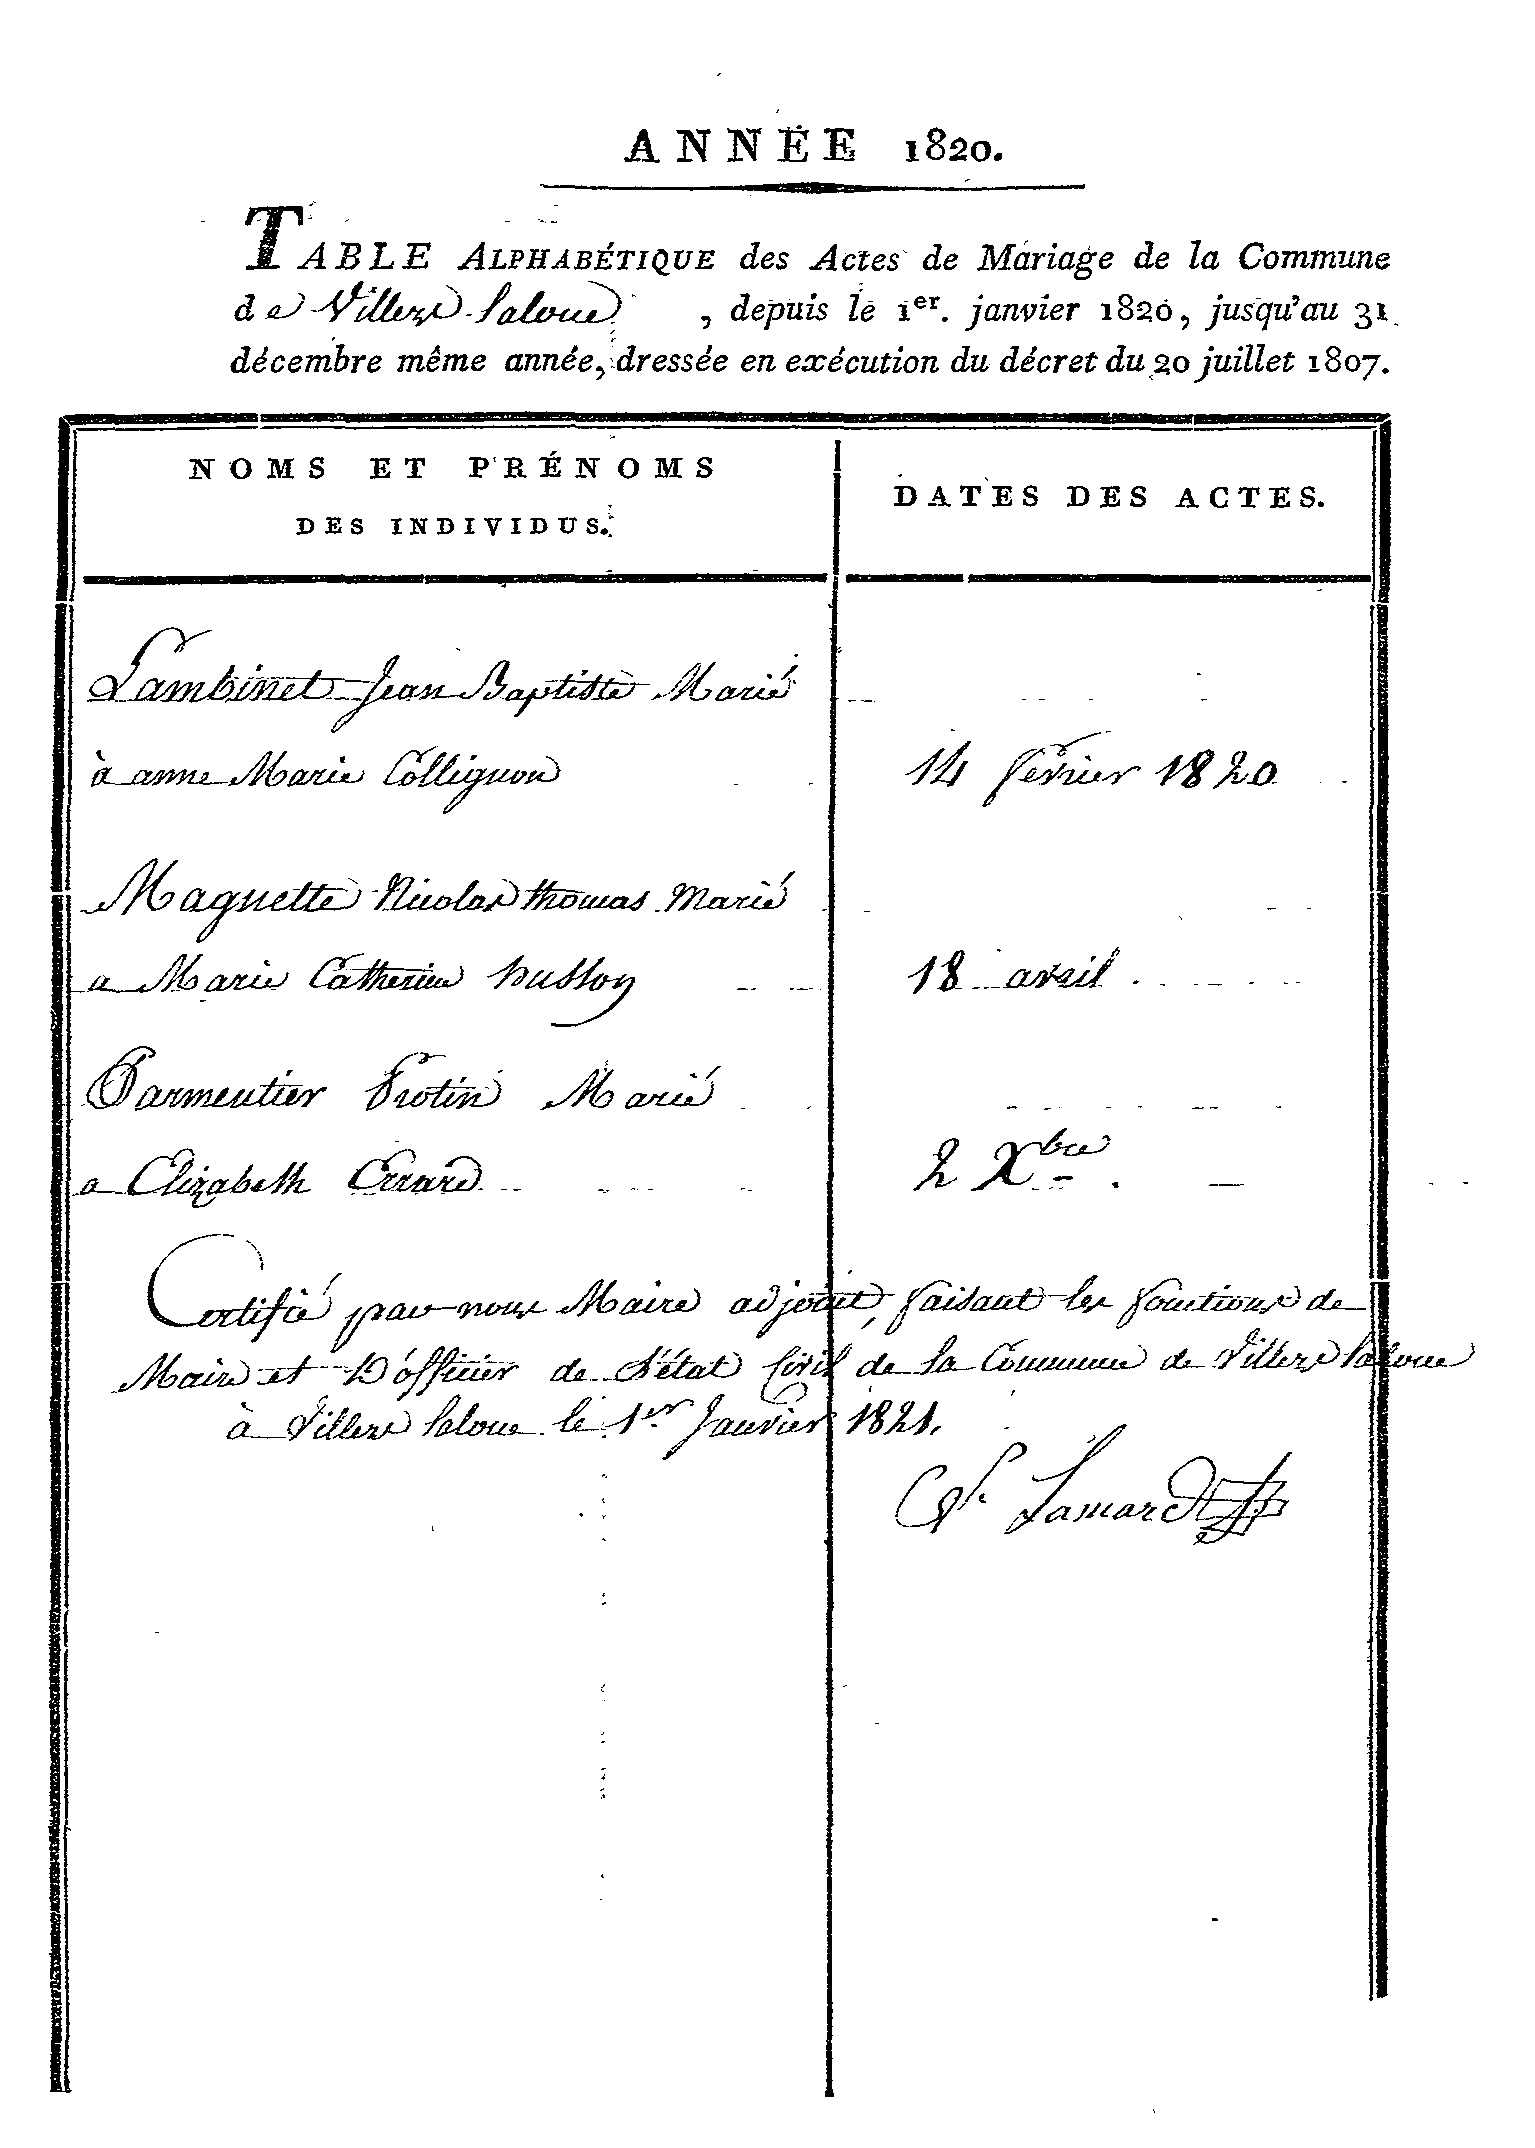 ANNÉE 1820.
TABLE ALPHABÉTIQUE des Actes de Mariage de la Commune
de Villers laloue, depuis le 1er. janvier 1820, jusqu'au 31
décembre même année, dressée en exécution du décret du 20 juillet 1807.
NOMS ET PRÉNOMS
DES INDIVIDUS.
DATES DES ACTES.
Lambinet Jean Baptiste Marié
à anne Marie Collignon 14 février 1820
Maguette Nicolas thomas Marié
a Marie Catherine husson 18 avril
Parmentier Frotin Marié
a Elizabeth Errard 2 Xbre
Certifié par nous Maire adjoint, faisant les fonctions de
Maire et D'officier de L'état Civil de la Commune de Villers laloue
à Villers laloue le 1er Janvier 1821.